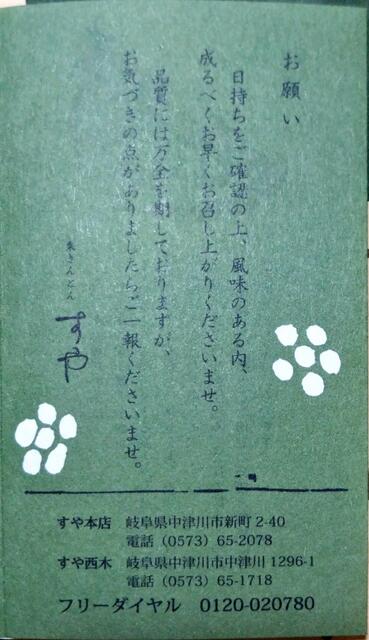 お願い
日持ちをご確認の上、風味のある内、
成るべくお早くお召し上がりくださいませ。
品質には万全を期しておりますが、
お気づきの点がありましたらご一報くださいませ。
栗きんとん
すや
すや本店 岐阜県中津川市新町 2-40
電話 (0573) 65-2078
すや西木 岐阜県中津川市中津川 1296-1
電話 (0573) 65-1718
フリーダイヤル 0120-020780